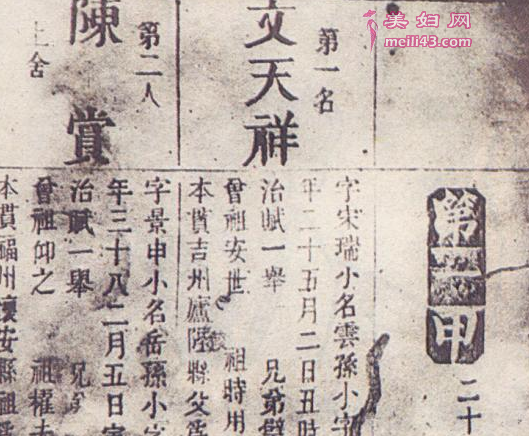 美妇网
meili43.com
第一甲
二十
第一名
文天祥
字宋瑞小名雲孫小字
年二十五月二日丑時
治賦一舉 兄弟
曾祖安世 祖時用
本貫吉州廬陵縣父爲
第二人
陳賞
上舍
字景申小名岳孫小字
年三十八二月五日
治賦一舉 兄
曾祖仰之 祖權
本貫福州懷安縣祖